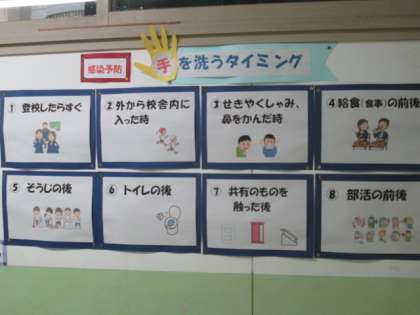 感染予防
手を洗うタイミング
① 登校したらすぐ
② 外から校舎内に
入った時
③ せきやくしゃみ、
鼻をかんだ時
④ 給食(食事)の前後
⑤ そうじの後
⑥ トイレの後
⑦ 共有のものを
触った後
⑧ 部活の前後